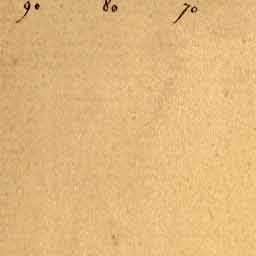 90 80 70